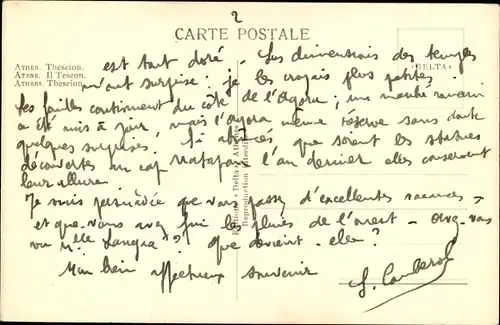 2
CARTE POSTALE
ATHEN. Theseion.
ATENE. Il Teseon.
ATHENS. Theseion.
DELTA
est tout doré. Les dimensions des temples
m'ont surprise : je les croyais plus petites.
Les fouilles continuent du côté de l'Agora ; un marché romain
a été mis à jour, mais l'agora même réserve sans doute
quelques surprises. Si abîmées que soient les statues
découvertes au cap Matapan l'an dernier elles conservent
leur allure.
Je suis persuadée que vous passez d'excellentes vacances
et que vous avez fui les pluies de l'ouest – Avez-vous
vu Mlle ? Que devient-elle ?
Mon bien affectueux souvenir
Editions Delta
Reproduction interdite